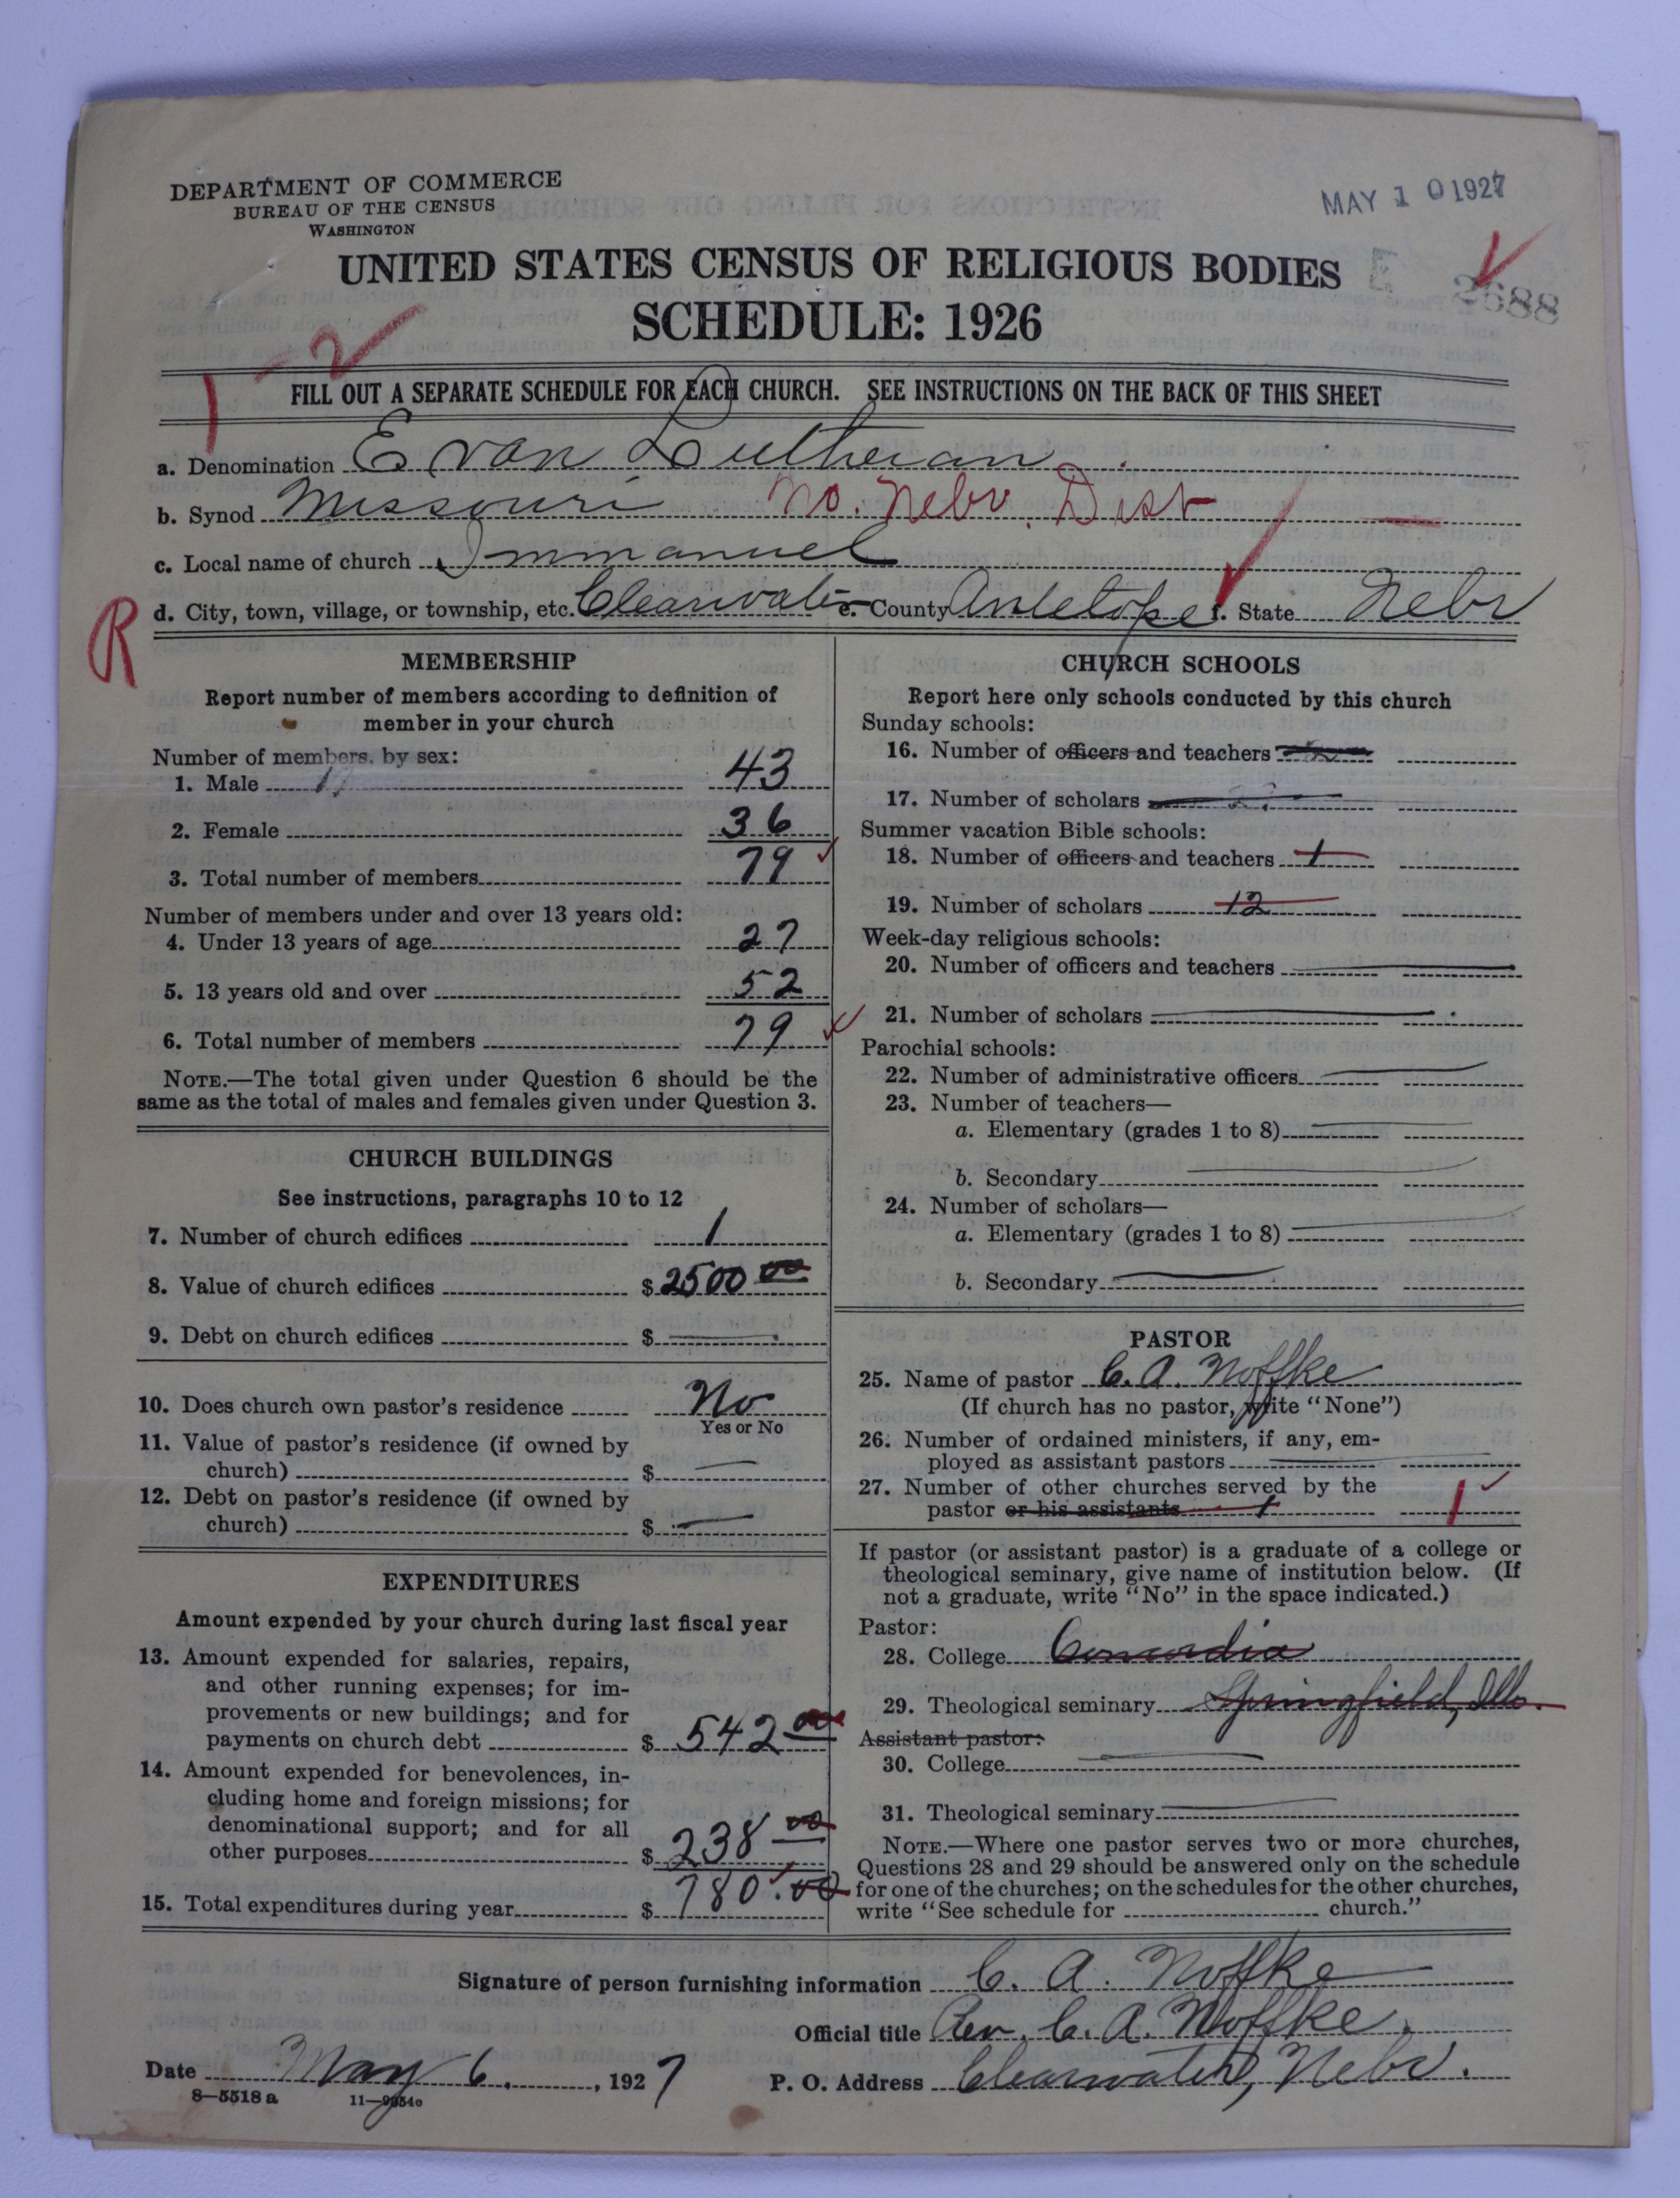 DEPARTMENT OF COMMERCE
BUREAU OF THE CENSUS
WASHINGTON
MAY 10 1927
UNITED STATES CENSUS OF RELIGIOUS BODIES
SCHEDULE: 1926
E 2688
1-2
FILL OUT A SEPARATE SCHEDULE FOR EACH CHURCH. SEE INSTRUCTIONS ON THE BACK OF THIS SHEET
a. Denomination Evan Lutheran
b. Synod Missouri No. Nebr. Dist
c. Local name of church Immanuel
R
d. City, town, village, or township, etc. Clearwater e. County Antelope f. State Nebr
MEMBERSHIP
Report number of members according to definition of
member in your church
Number of members, by sex:
1. Male 43
2. Female 36
3. Total number of members 79
Number of members under and over 13 years old:
4. Under 13 years of age 27
5. 13 years old and over 52
6. Total number of members 79
NOTE.—The total given under Question 6 should be the
same as the total of males and females given under Question 3.
CHURCH BUILDINGS
See instructions, paragraphs 10 to 12
7. Number of church edifices 1
8. Value of church edifices $2500 00
9. Debt on church edifices $
10. Does church own pastor's residence No
Yes or No
11. Value of pastor's residence (if owned by
church) $
12. Debt on pastor's residence (if owned by
church) $
EXPENDITURES
Amount expended by your church during last fiscal year
13. Amount expended for salaries, repairs,
and other running expenses; for im-
provements or new buildings; and for
payments on church debt $ 542 00
14. Amount expended for benevolences, in-
cluding home and foreign missions; for
denominational support; and for all
other purposes $ 238 00
15. Total expenditures during year $ 780.00
CHURCH SCHOOLS
Report here only schools conducted by this church
Sunday schools:
16. Number of officers and teachers
17. Number of scholars
Summer vacation Bible schools:
18. Number of officers and teachers 1
19. Number of scholars 12
Week-day religious schools:
20. Number of officers and teachers
21. Number of scholars
Parochial schools:
22. Number of administrative officers
23. Number of teachers—
a. Elementary (grades 1 to 8)
b. Secondary
24. Number of scholars—
a. Elementary (grades 1 to 8)
b. Secondary
PASTOR
25. Name of pastor C. A. Noffke
(If church has no pastor, write "None")
26. Number of ordained ministers, if any, em-
ployed as assistant pastors
27. Number of other churches served by the
pastor or his assistants 1 1
If pastor (or assistant pastor) is a graduate of a college or
theological seminary, give name of institution below. (If
not a graduate, write "No" in the space indicated.)
Pastor:
28. College Concordia
29. Theological seminary Springfield, Ills.
Assistant pastor:
30. College
31. Theological seminary
NOTE.—Where one pastor serves two or more churches,
Questions 28 and 29 should be answered only on the schedule
for one of the churches; on the schedules for the other churches,
write "See schedule for church."
Signature of person furnishing information C. A. Noffke
Official title Rev. C. A. Noffke.
Date May 6. , 1927
P. O. Address Clearwater, Nebr.
8—5518 a